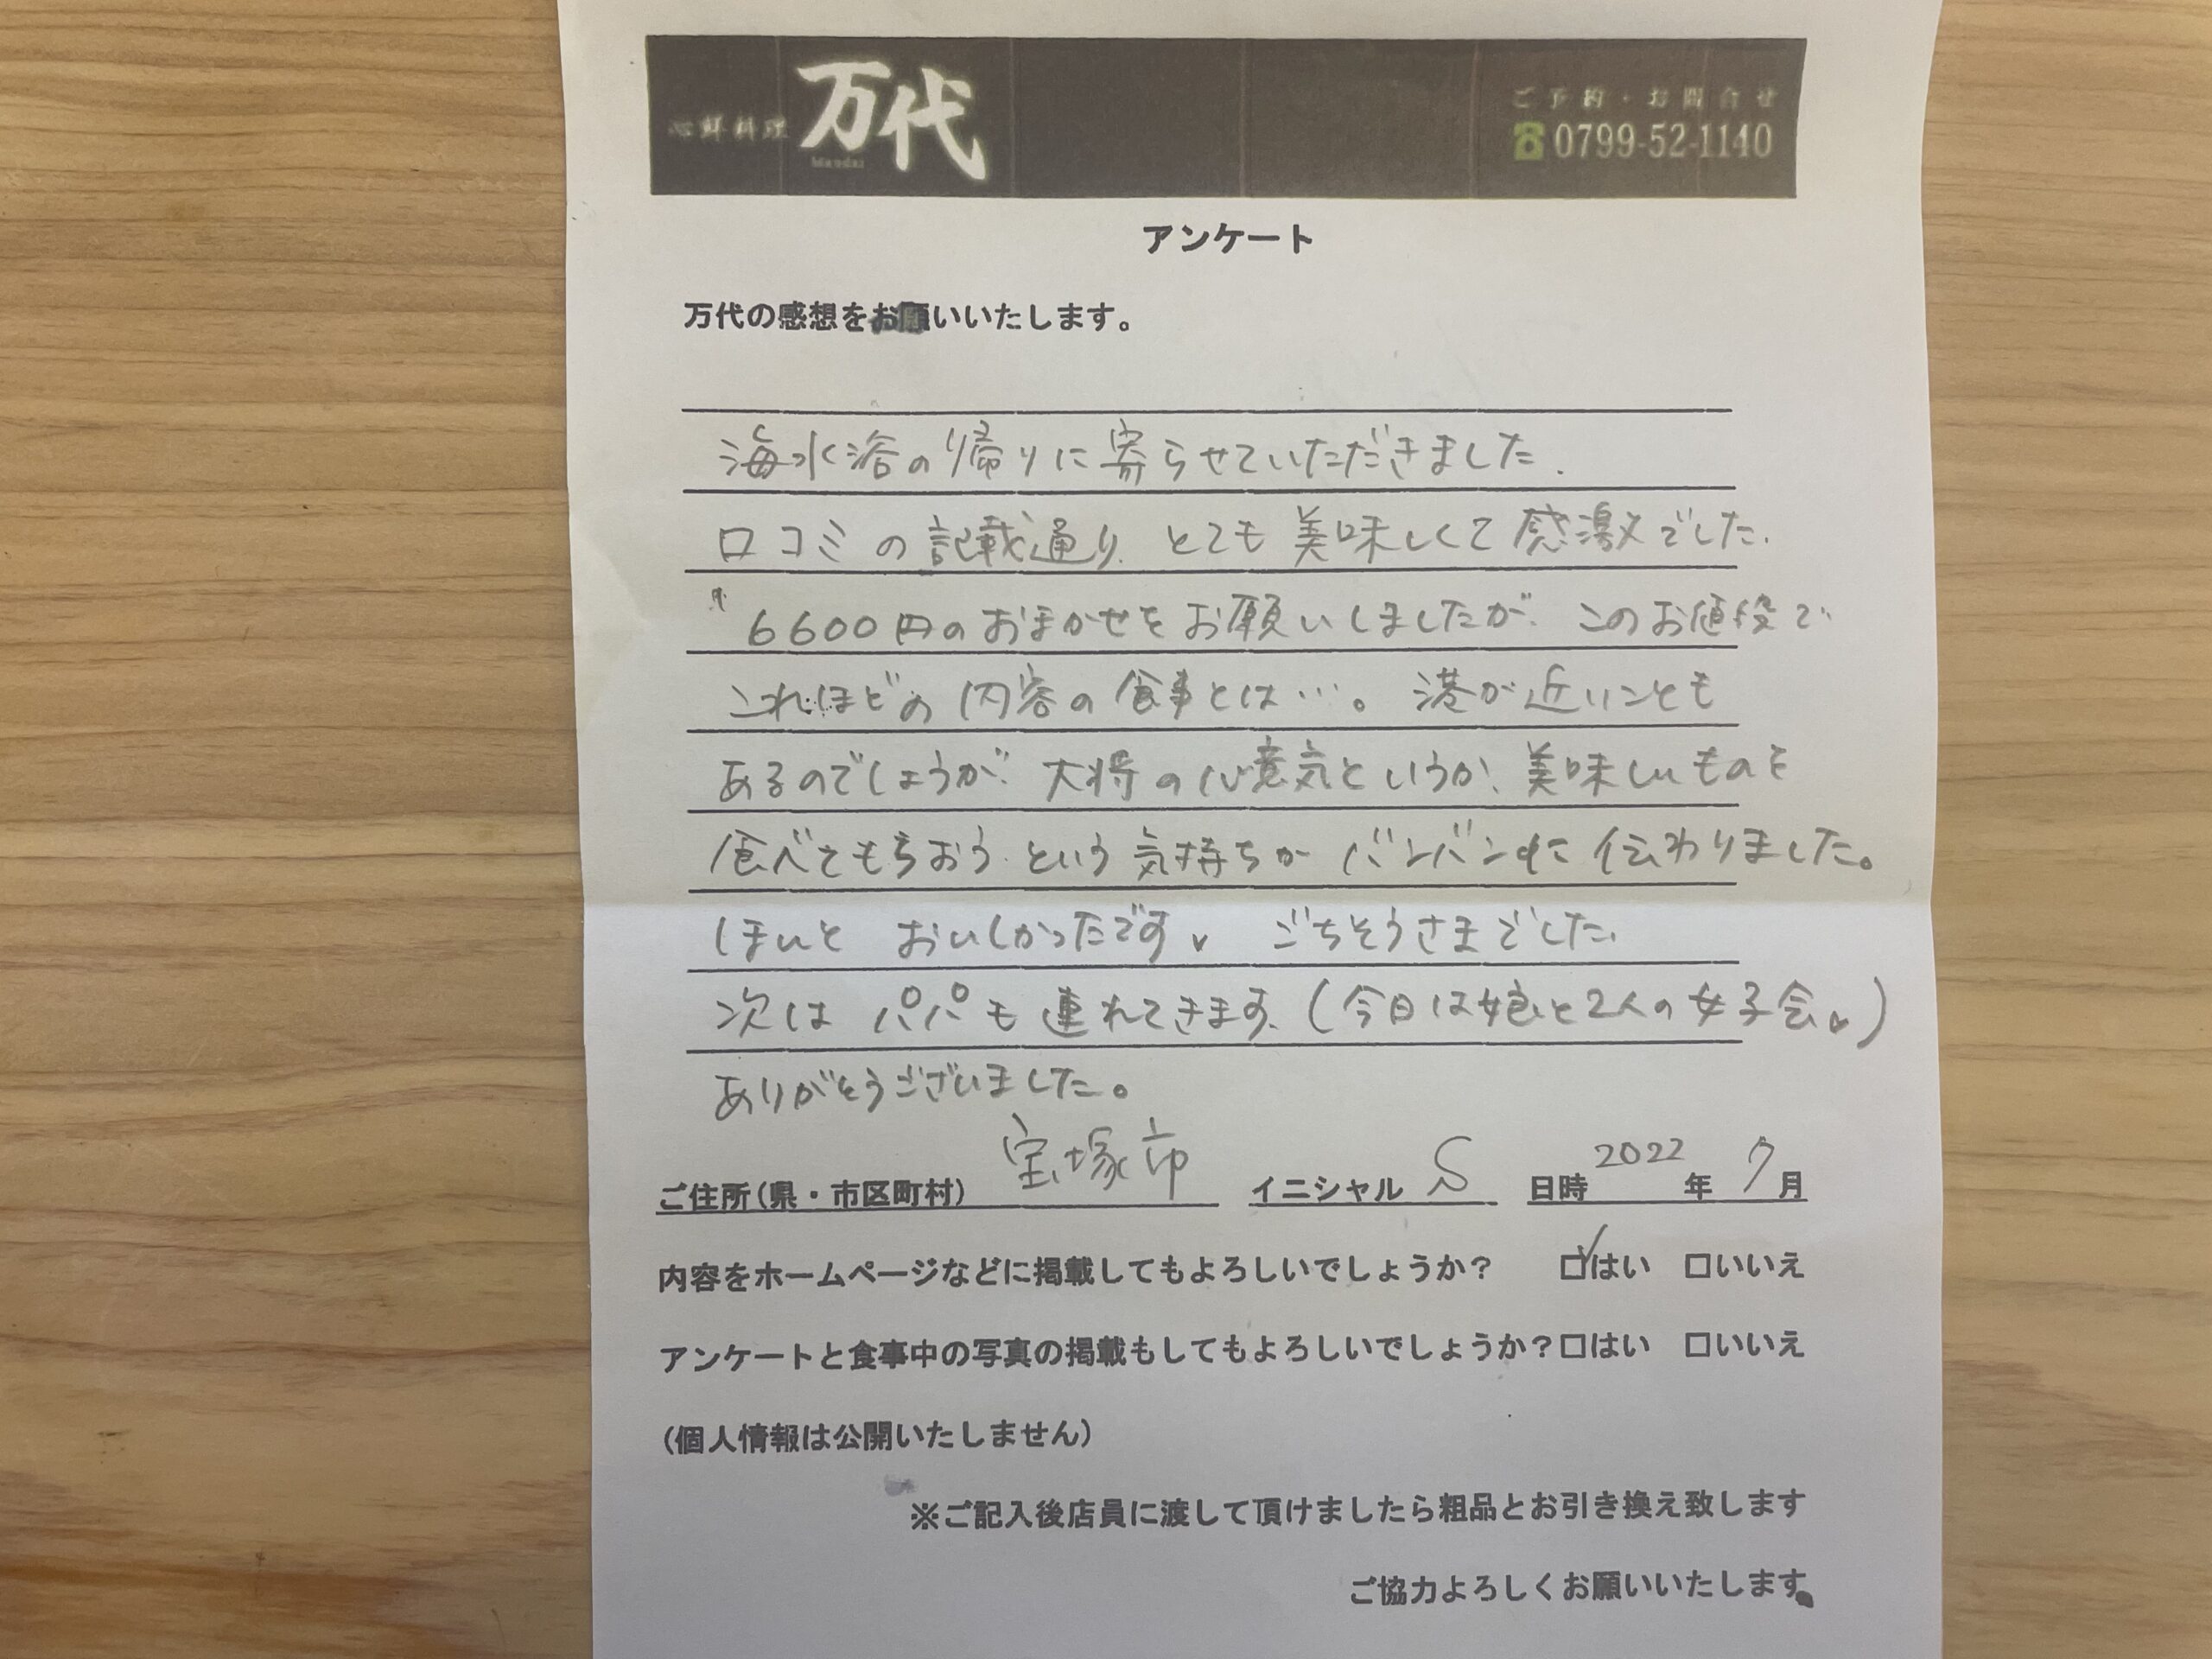 心鮮料理 万代
Mandai
ご予約・お問合せ
0799-52-1140
アンケート
万代の感想をお願いいたします。
海水浴の帰りに寄らせていただきました.
口コミの記載通り、とても美味しくて感激でした.
6600円のおまかせをお願いしましたが、このお値段で
これほどの内容の食事とは…。港が近いことも
あるのでしょうが、大将の心意気というか、美味しいものを
食べてもらおう、という気持ちが バンバンに伝わりました。
ほんと おいしかったです♥ ごちそうさまでした.
次は パパも連れてきます、(今日は娘と2人の女子会♥)
ありがとうございました。
ご住所(県・市区町村) 宝塚市 イニシャル S 日時 2022年 7月
内容をホームページなどに掲載してもよろしいでしょうか? ☑はい □いいえ
アンケートと食事中の写真の掲載もしてもよろしいでしょうか?□はい □いいえ
(個人情報は公開いたしません)
※ご記入後店員に渡して頂けましたら粗品とお引き換え致します
ご協力よろしくお願いいたします。